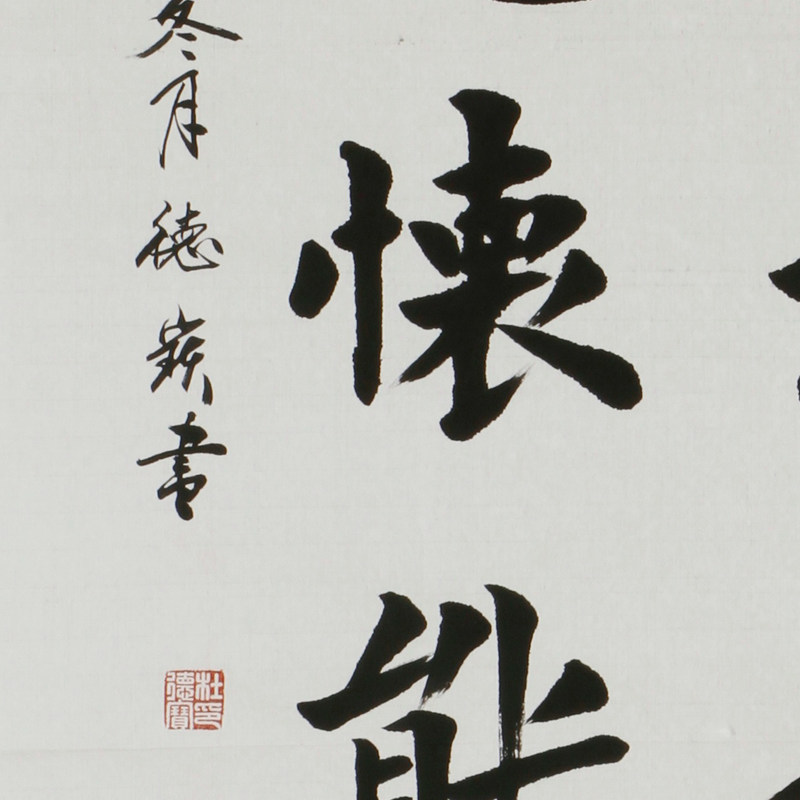 懷能
冬月德書
杜印
德寶